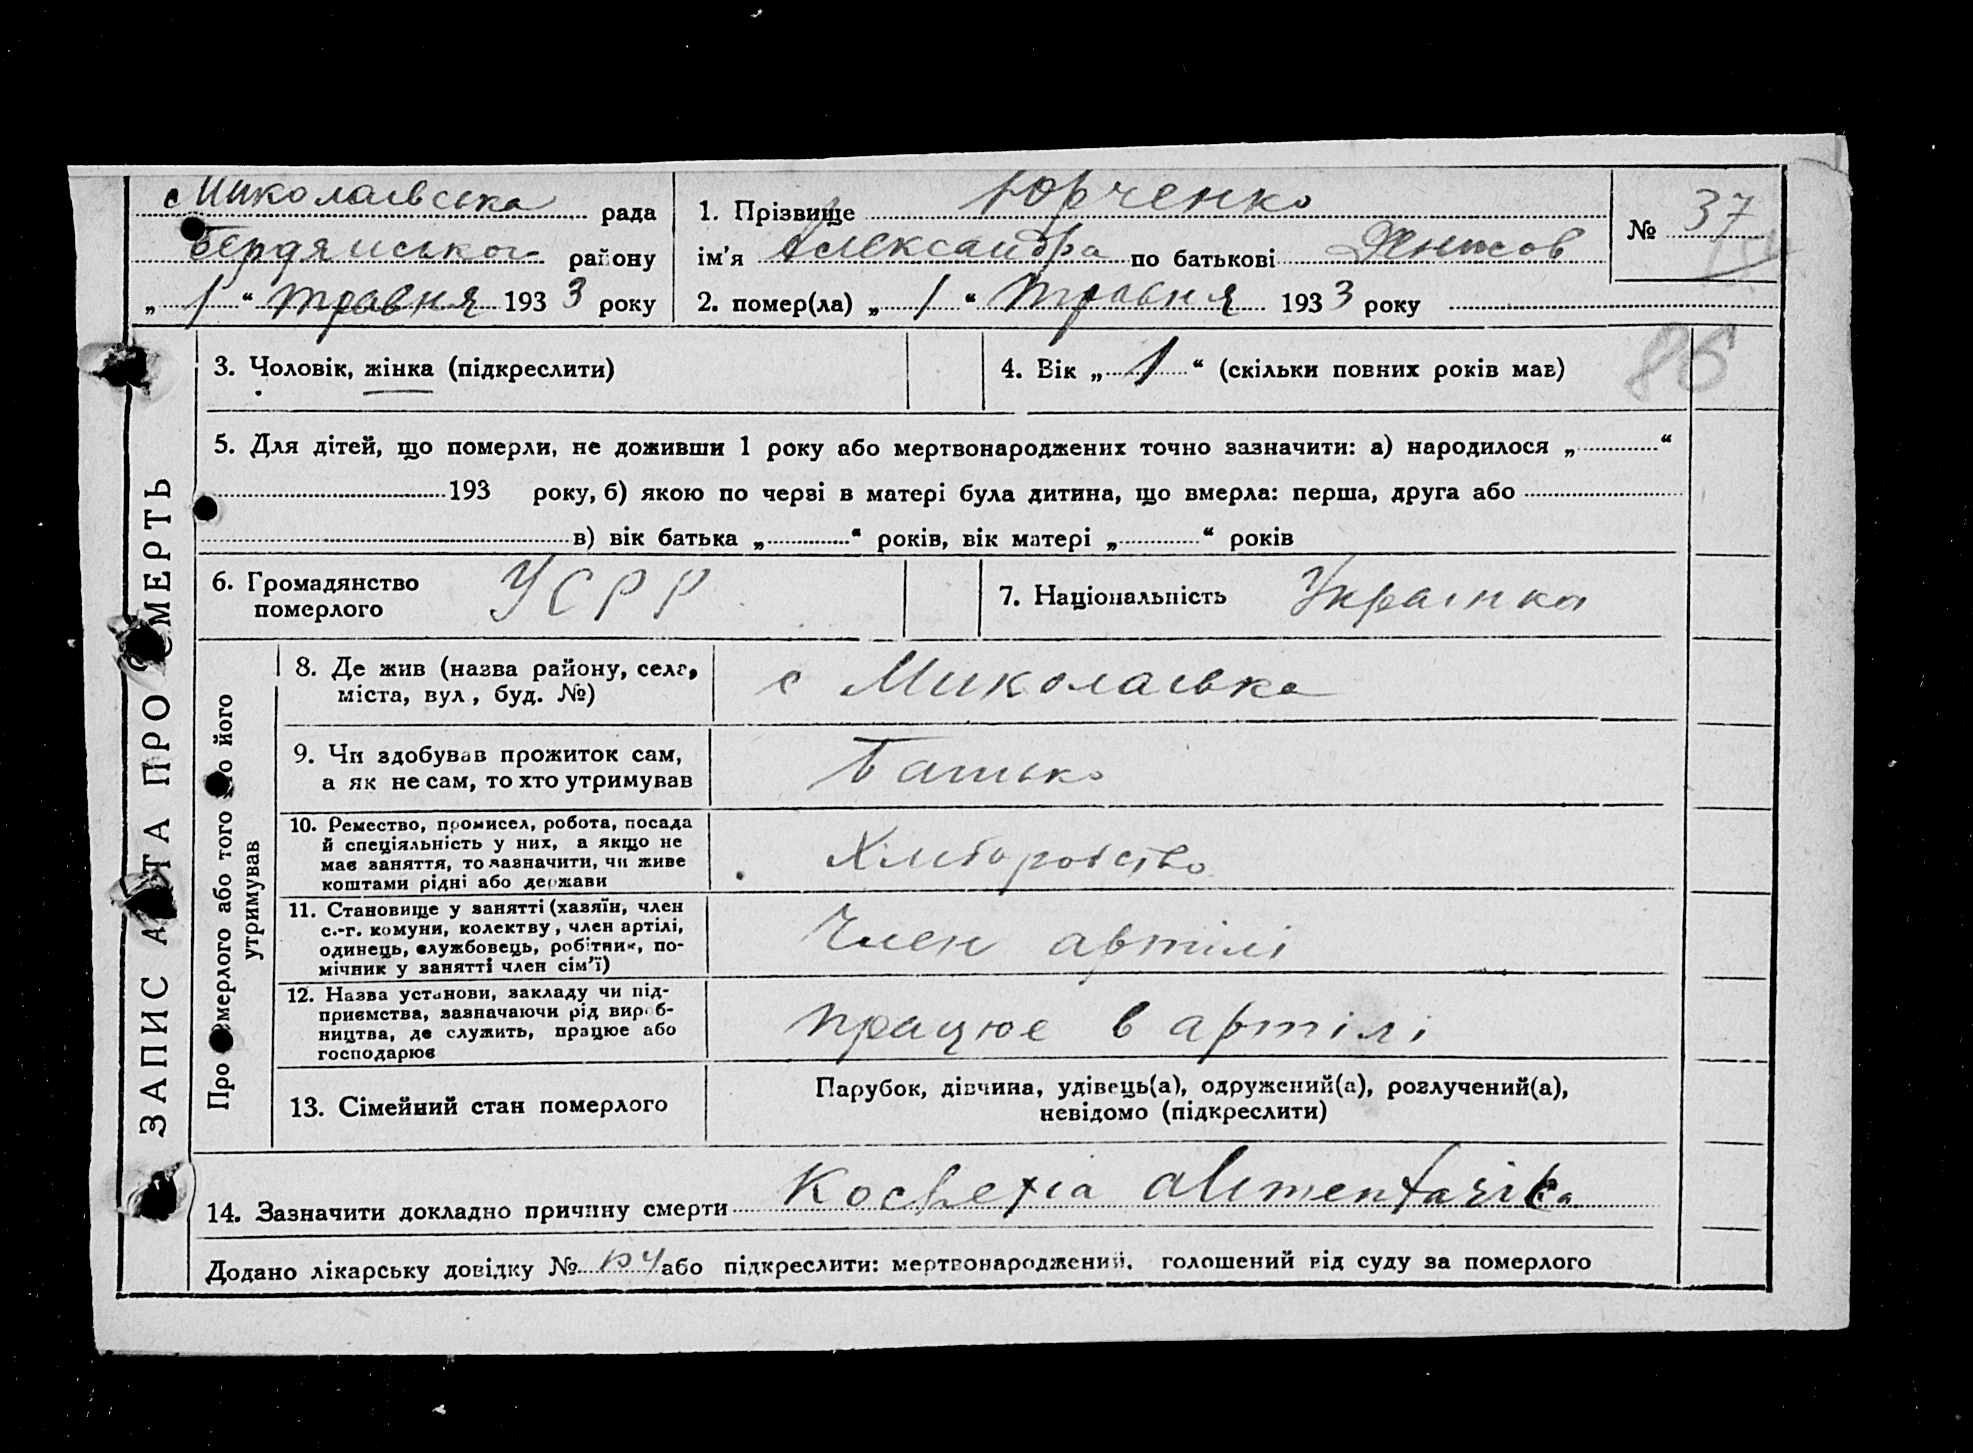 с Миколаївська рада
Бердянського району
„ 1 “ травня 1933 року
1. Прізвище Юрченко
ім'я Александра по батькові
2. помер(ла) „ 1 “ травня 1933 року
№ 37
86
ЗАПИС АКТА ПРО СМЕРТЬ
3. Чоловік, жінка (підкреслити)
4. Вік „ 1 “ (скільки повних років має)
5. Для дітей, що померли, не доживши 1 року або мертвонароджених точно зазначити: а) народилося „ “
193 року, б) якою по черзі в матері була дитина, що вмерла: перша, друга або
в) вік батька „ “ років, вік матері „ “ років
6. Громадянство
померлого
УСРР
7. Національність Українка
Про померлого або того хто його
утримував
8. Де жив (назва району, села,
міста, вул, буд. №)
с Миколаївка
9. Чи здобував прожиток сам,
а як не сам, то хто утримував
Батько
10. Ремество, промисел, робота, посада
й спеціяльність у них, а якщо не
має заняття, то зазначити, чи живе
коштами рідні або держави
Хліборобство
11. Становище у занятті (хазяїн, член
с.-г. комуни, колективу, член артілі,
одинець, службовець, робітник, по-
мічник у занятті член сім'ї)
Член артілі
12. Назва установи, закладу чи під-
приємства, зазначаючи рід вироб-
ництва, де служить, працює або
господарює
працює в артілі
13. Сімейний стан померлого
Парубок, дівчина, удівець(а), одружений(а), розлучений(а),
невідомо (підкреслити)
14. Зазначити докладно причину смерти alimentarika
Додано лікарську довідку № або підкреслити: мертвонароджений, голошений від суду за померлого